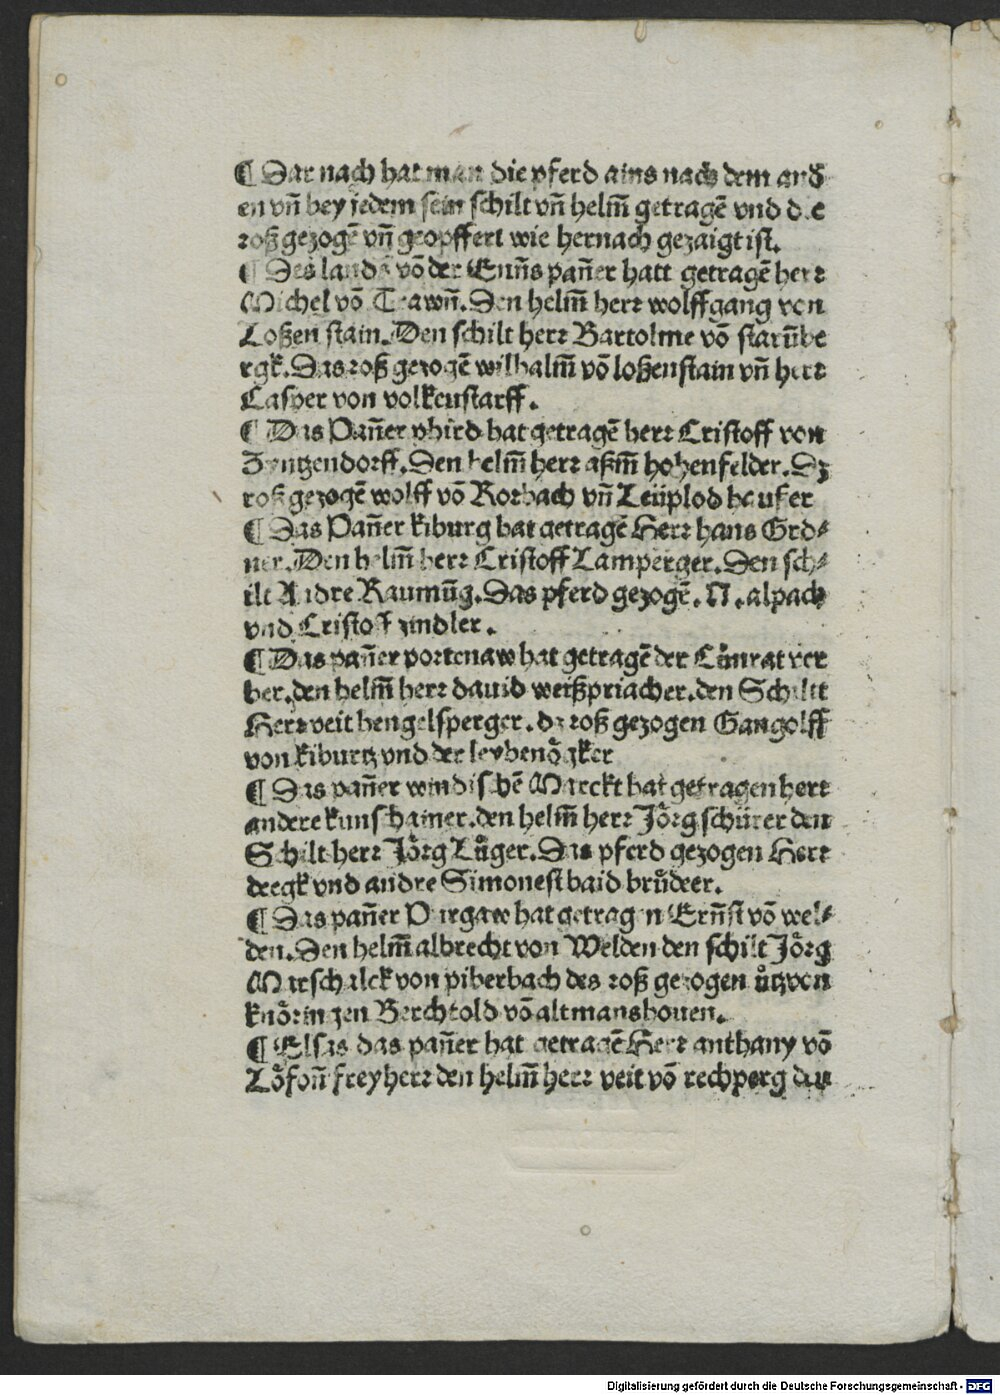 ¶ Dar nach hat man die pferd ains nach dem and
en vn̄ bey jedem sein schilt vn̄ helm̄ getragē vnd die
roß gezogē vn̄ geopffert wie hernach gezaigt ist.
¶ Des lands vō der Enn̄s pan̄er hatt getragē herr
Michel vō Trawn̄. Den helm̄ herr wolffgang von
Loßen stain. Den schilt herr Bartolme vō starn̄be
rgk. Das roß gezogē wilhalm̄ vō loßenstain vn̄ herr
Casper von volkenstarff.
¶ Das Pan̄er phird hat getragē herr Cristoff von
Zyntzendorff. Den helm̄ herr aßm̄ hohenfelder. Dz
roß gezogē wolff vō Rorbach vn̄ Leüplod haufer
¶ Das Pan̄er kiburg hat getragē Herr hans Grd⸗
ner. Den helm̄ herr Cristoff Lamperger. Den sch⸗
ilt Andre Raumūg. Das pferd gezogē. N. alpach
vnd Cristoff zindler.
¶ Das pan̄er portenaw hat getragē der Cůnrat ver
ber. den helm̄ herr dauid weißpriacher. den Schiltt
Herr veit hengelsperger. dz roß gezogen Gangolff
von kiburtz vnd der
¶ Das pan̄er windischē Marckt hat getragen herr
andere kunschainer. den helm̄ herr Jörg schürer den
Schilt herr Jörg Lůger. Das pferd gezogen Herr
dregk vnd andre Simonest baid brůder.
¶ Das pan̄er Purgaw hat getragen Ern̄st vō wel⸗
den. Den helm̄ albrecht von Welden den schilt Jörg
Marschalck von piberbach des roß gezogen ůtz von
knöringen Berchtold vō altmanshouen.
¶ Elsas das pan̄er hat getragē Herr anthany vō
Löfon̄ freyherr den helm̄ herr veit vō rechperg den
Digitalisierung gefördert durch die Deutsche Forschungsgemeinschaft - DFG